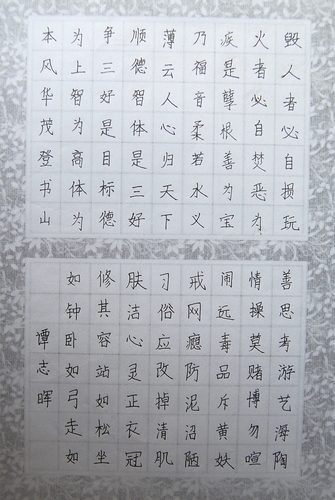 毁人者必自损玩
火者必自焚恶为
疾是孽根善为宝
乃福音柔若水义
薄云人心归天下
顺德智体是三好
争三好是目标德
为上智为高体为
本风华茂登书山
善思考游艺海陶
情操莫赌博勿喧
闹远毒品斥黄妖
戒网瘾防泥沼陋
习俗应改掉清肌
肤洁心灵正衣冠
修其容站如松坐
如钟卧如弓走如
谭志晖